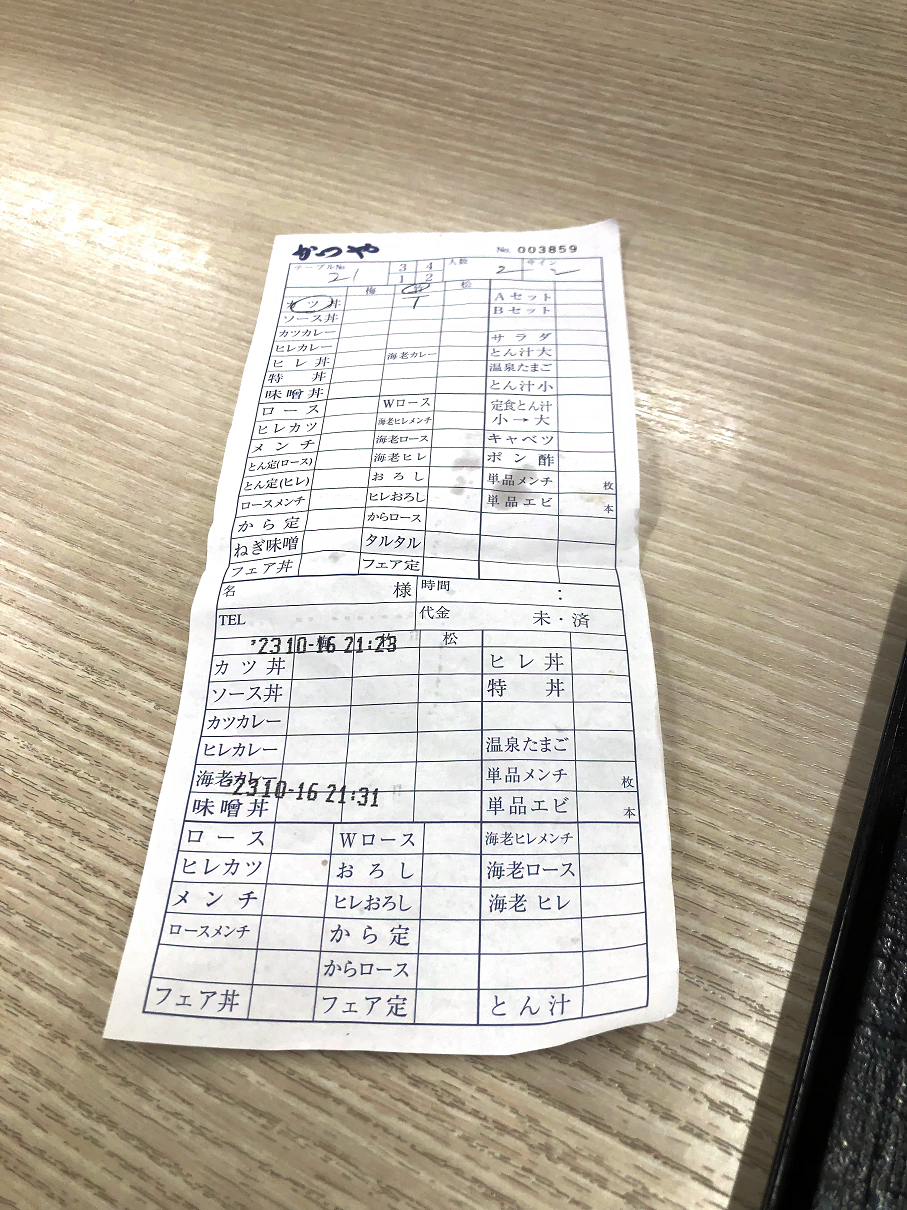 かつや No. 003859
テーブルNo 21 3 4 1 2 人数 2 サイン
梅 竹 松 Aセット
カツ丼 T Bセット
ソース丼
カツカレー サラダ
ヒレカレー 海老カレー とん汁大
ヒレ丼 温泉たまご
特丼 とん汁小
味噌丼 Wロース 定食とん汁
小→大
ロース 海老ヒレメンチ キャベツ
ヒレカツ 海老ロース ポン酢
メンチ 海老ヒレ 単品メンチ 枚
とん定(ロース) おろし 単品エビ 本
とん定(ヒレ) ヒレおろし
ロースメンチ からロース
から定 タルタル
ねぎ味噌 フェア定
フェア丼
名 様 時間 :
TEL 代金 未・済
'2310-16 21:23
梅 竹 松
カツ丼 ヒレ丼
ソース丼 特丼
カツカレー
ヒレカレー 温泉たまご
海老カレー 単品メンチ 枚
'2310-16 21:31
味噌丼 単品エビ 本
ロース Wロース 海老ヒレメンチ
ヒレカツ おろし 海老ロース
メンチ ヒレおろし 海老ヒレ
ロースメンチ から定
からロース
フェア丼 フェア定 とん汁